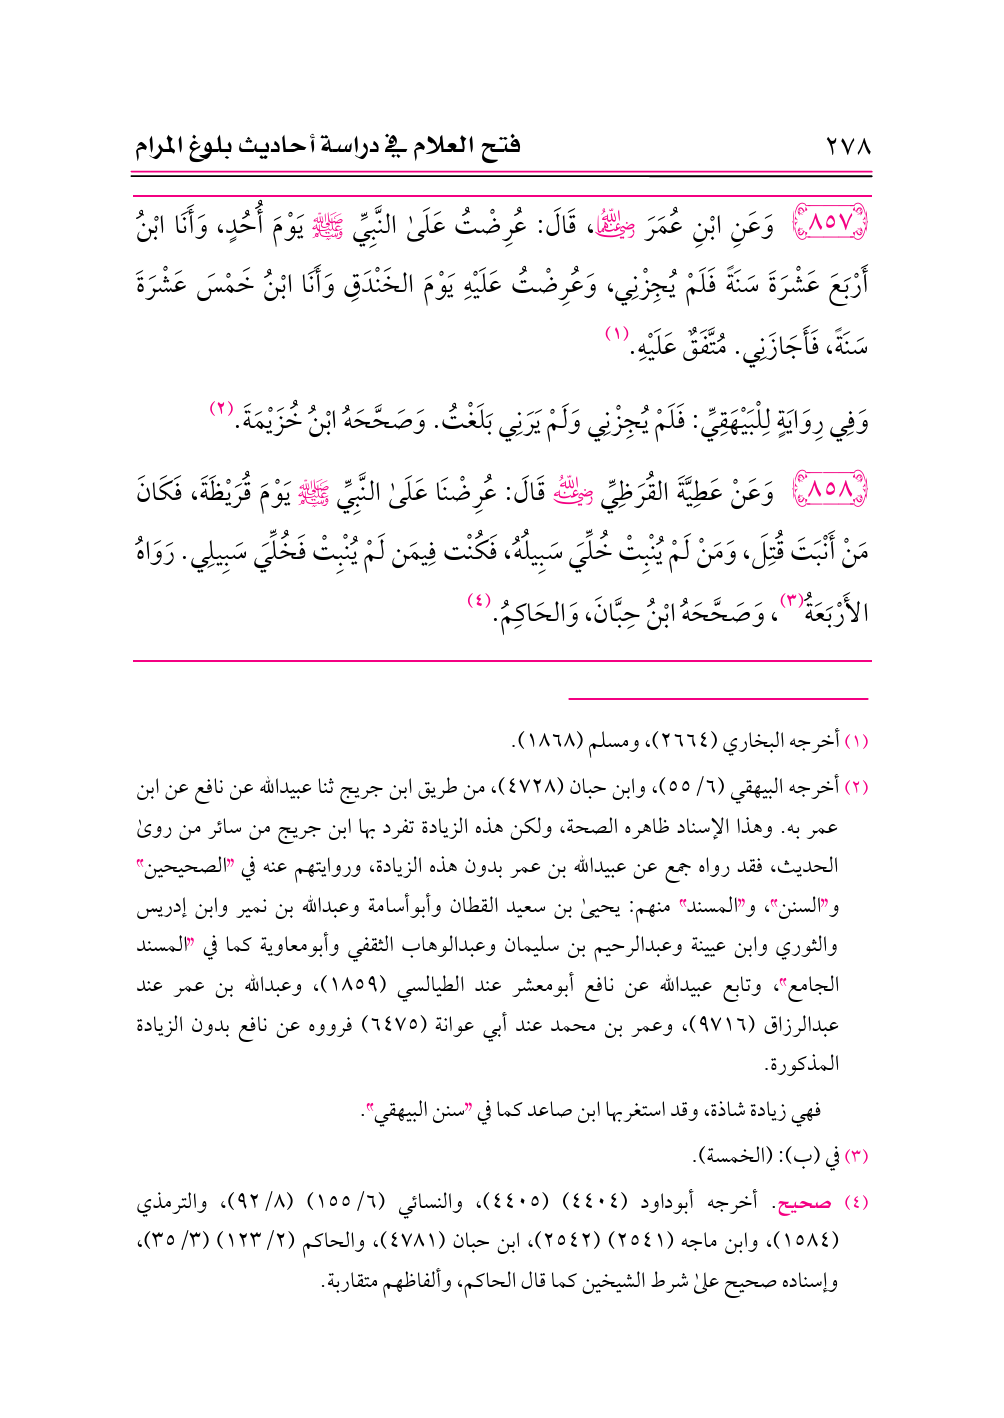 ٢٧٨ فتح العلام في دراسة أحاديث بلوغ المرام
٨٥٧ وَعَنِ ابْنِ عُمَرَ رضي الله عنهما، قَالَ: عُرِضْتُ عَلَىٰ النَّبِيِّ ﷺ يَوْمَ أُحُدٍ، وَأَنَا ابْنُ
أَرْبَعَ عَشْرَةَ سَنَةً فَلَمْ يُجِزْنِي، وَعُرِضْتُ عَلَيْهِ يَوْمَ الخَنْدَقِ وَأَنَا ابْنُ خَمْسَ عَشْرَةَ
سَنَةً، فَأَجَازَنِي. مُتَّفَقٌ عَلَيْهِ.(١)
وَفِي رِوَايَةٍ لِلْبَيْهَقِيِّ: فَلَمْ يُجِزْنِي وَلَمْ يَرَنِي بَلَغْتُ. وَصَحَّحَهُ ابْنُ خُزَيْمَةَ.(٢)
٨٥٨ وَعَنْ عَطِيَّةَ القُرَظِيِّ رضي الله عنه قَالَ: عُرِضْنَا عَلَىٰ النَّبِيِّ ﷺ يَوْمَ قُرَيْظَةَ، فَكَانَ
مَنْ أَنْبَتَ قُتِلَ، وَمَنْ لَمْ يُنْبِتْ خُلِّيَ سَبِيلُهُ، فَكُنْت فِيمَن لَمْ يُنْبِتْ فَخُلِّيَ سَبِيلِي. رَوَاهُ
الأَرْبَعَةُ(٣)، وَصَحَّحَهُ ابْنُ حِبَّانَ، وَالحَاكِمُ.(٤)
(١) أخرجه البخاري (٢٦٦٤)، ومسلم (١٨٦٨).
(٢) أخرجه البيهقي (٦/ ٥٥)، وابن حبان (٤٧٢٨)، من طريق ابن جريج ثنا عبيدالله عن نافع عن ابن
عمر به. وهذا الإسناد ظاهره الصحة، ولكن هذه الزيادة تفرد بها ابن جريج من سائر من روىٰ
الحديث، فقد رواه جمع عن عبيدالله بن عمر بدون هذه الزيادة، وروايتهم عنه في "الصحيحين"
و"السنن"، و"المسند" منهم: يحيىٰ بن سعيد القطان وأبوأسامة وعبدالله بن نمير وابن إدريس
والثوري وابن عيينة وعبدالرحيم بن سليمان وعبدالوهاب الثقفي وأبومعاوية كما في "المسند
الجامع"، وتابع عبيدالله عن نافع أبومعشر عند الطيالسي (١٨٥٩)، وعبدالله بن عمر عند
عبدالرزاق (٩٧١٦)، وعمر بن محمد عند أبي عوانة (٦٤٧٥) فرووه عن نافع بدون الزيادة
المذكورة.
فهي زيادة شاذة، وقد استغربها ابن صاعد كما في "سنن البيهقي".
(٣) في (ب): (الخمسة).
(٤) صحيح. أخرجه أبوداود (٤٤٠٤) (٤٤٠٥)، والنسائي (٦/ ١٥٥) (٨/ ٩٢)، والترمذي
(١٥٨٤)، وابن ماجه (٢٥٤١) (٢٥٤٢)، ابن حبان (٤٧٨١)، والحاكم (٢/ ١٢٣) (٣/ ٣٥)،
وإسناده صحيح علىٰ شرط الشيخين كما قال الحاكم، وألفاظهم متقاربة.